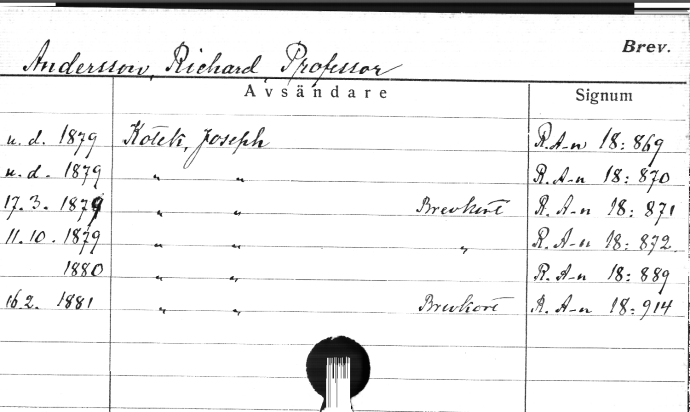 Brev.
Andersson, Richard, Professor
Avsändare Signum
u. d. 1879 Kotek, Joseph R. A-n 18: 869
u. d. 1879 " " R. A-n 18: 870
17. 3. 1879 " " Brevkort R. A-n 18: 871
11. 10. 1879 " " " R. A-n 18: 872
1880 " " R. A-n 18: 889
16 2. 1881 " " Brevkort R. A-n 18: 914